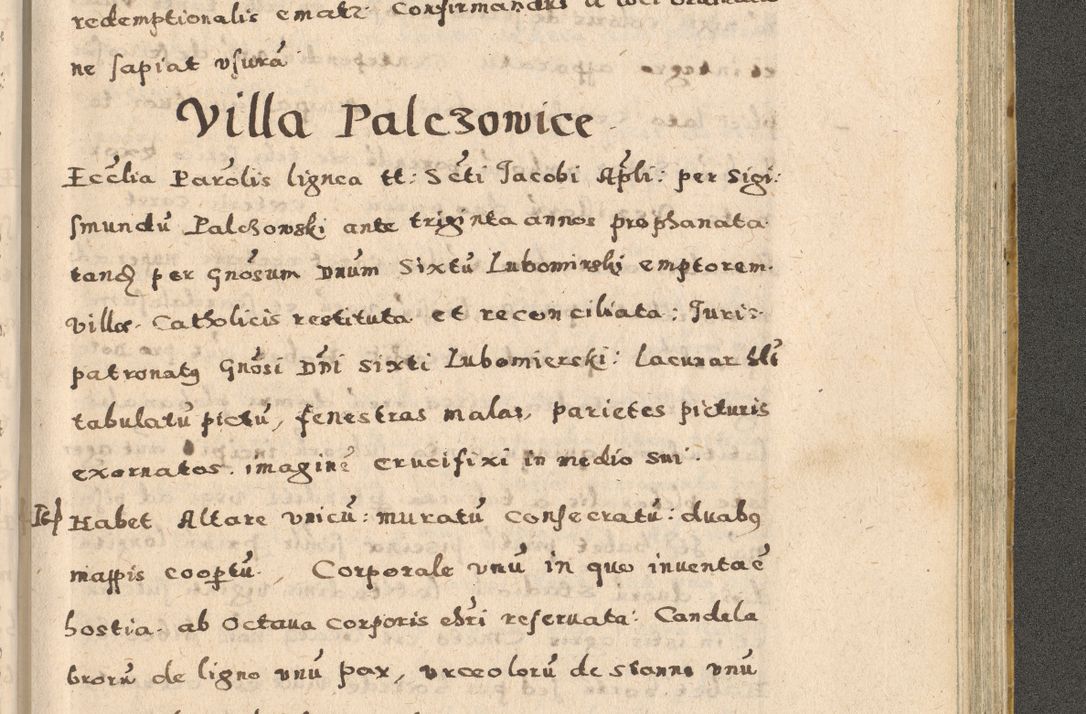 redemptionalis ematr. Confirmandus a loci
ne sapiat vsurá
Villa Palczowice
Eccĺia Parolis lignea tt: Scti Jacobi Apli: per Sigi:
smundú Palczowski ante triginta annos prophanata
tandꝫ per Gnosum Dnúm Sixtú Lubomirski emptorem
villæ. Catholicis restituta et reconciliata: Juris
patronatꝰ Gnosi Dni Sixti Lubomierski: lacunar
tabulatú pictú, fenestras malas, parietes picturis
exornatos. imaginé crucifixi in medio sui.
Habet Altare vnicú: muratú consecratú: duabꝰ
mappis coopertú, Corporale vnú in quo inventa é
hostia. ab Octaua Corporis Chri reseruata: Candela
brorú de ligno vnú par, vrceolorú de stanno vnú